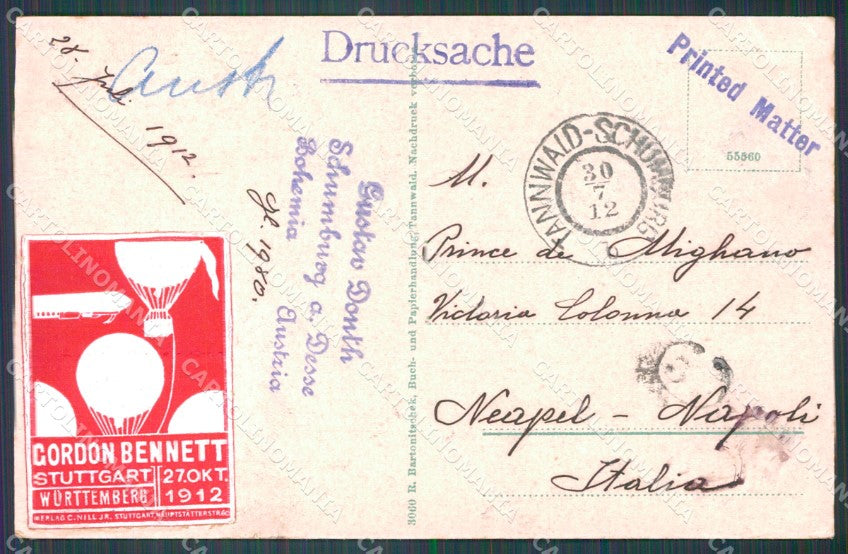 Drucksache
Printed Matter
28. Juli 1912.
Austr
55560
TANNWALD-SCHUMBURG
30
7
12
Gustav Donth
Schumburg a. Desse
Bohemia Austria
Gl. 1980.
M.
Prince de Mighano
Victoria Colonna 14
Neapel - Napoli
Italia
3060 R. Bartonitschek, Buch- und Papierhandlung, Tannwald. Nachdruck verboten.
GORDON BENNETT
STUTTGART 27.OKT.
WÜRTTEMBERG 1912
VERLAG C. NILL JR. STUTTGART HAUPTSTÄTTERSTR.
CARTOLINOMANIA